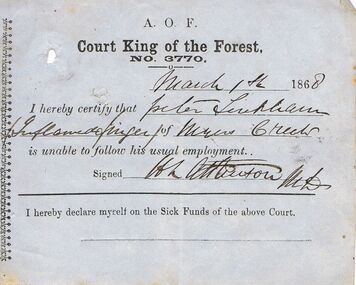 A. O. F.
Court King of the Forest,
NO. 3770.
March 1st 1868
I hereby certify that Peter
Inflamed finger of Myers Creek
is unable to follow his usual employment.
Signed H L Atkinson M.D.
I hereby declare myself on the Sick Funds of the above Court.